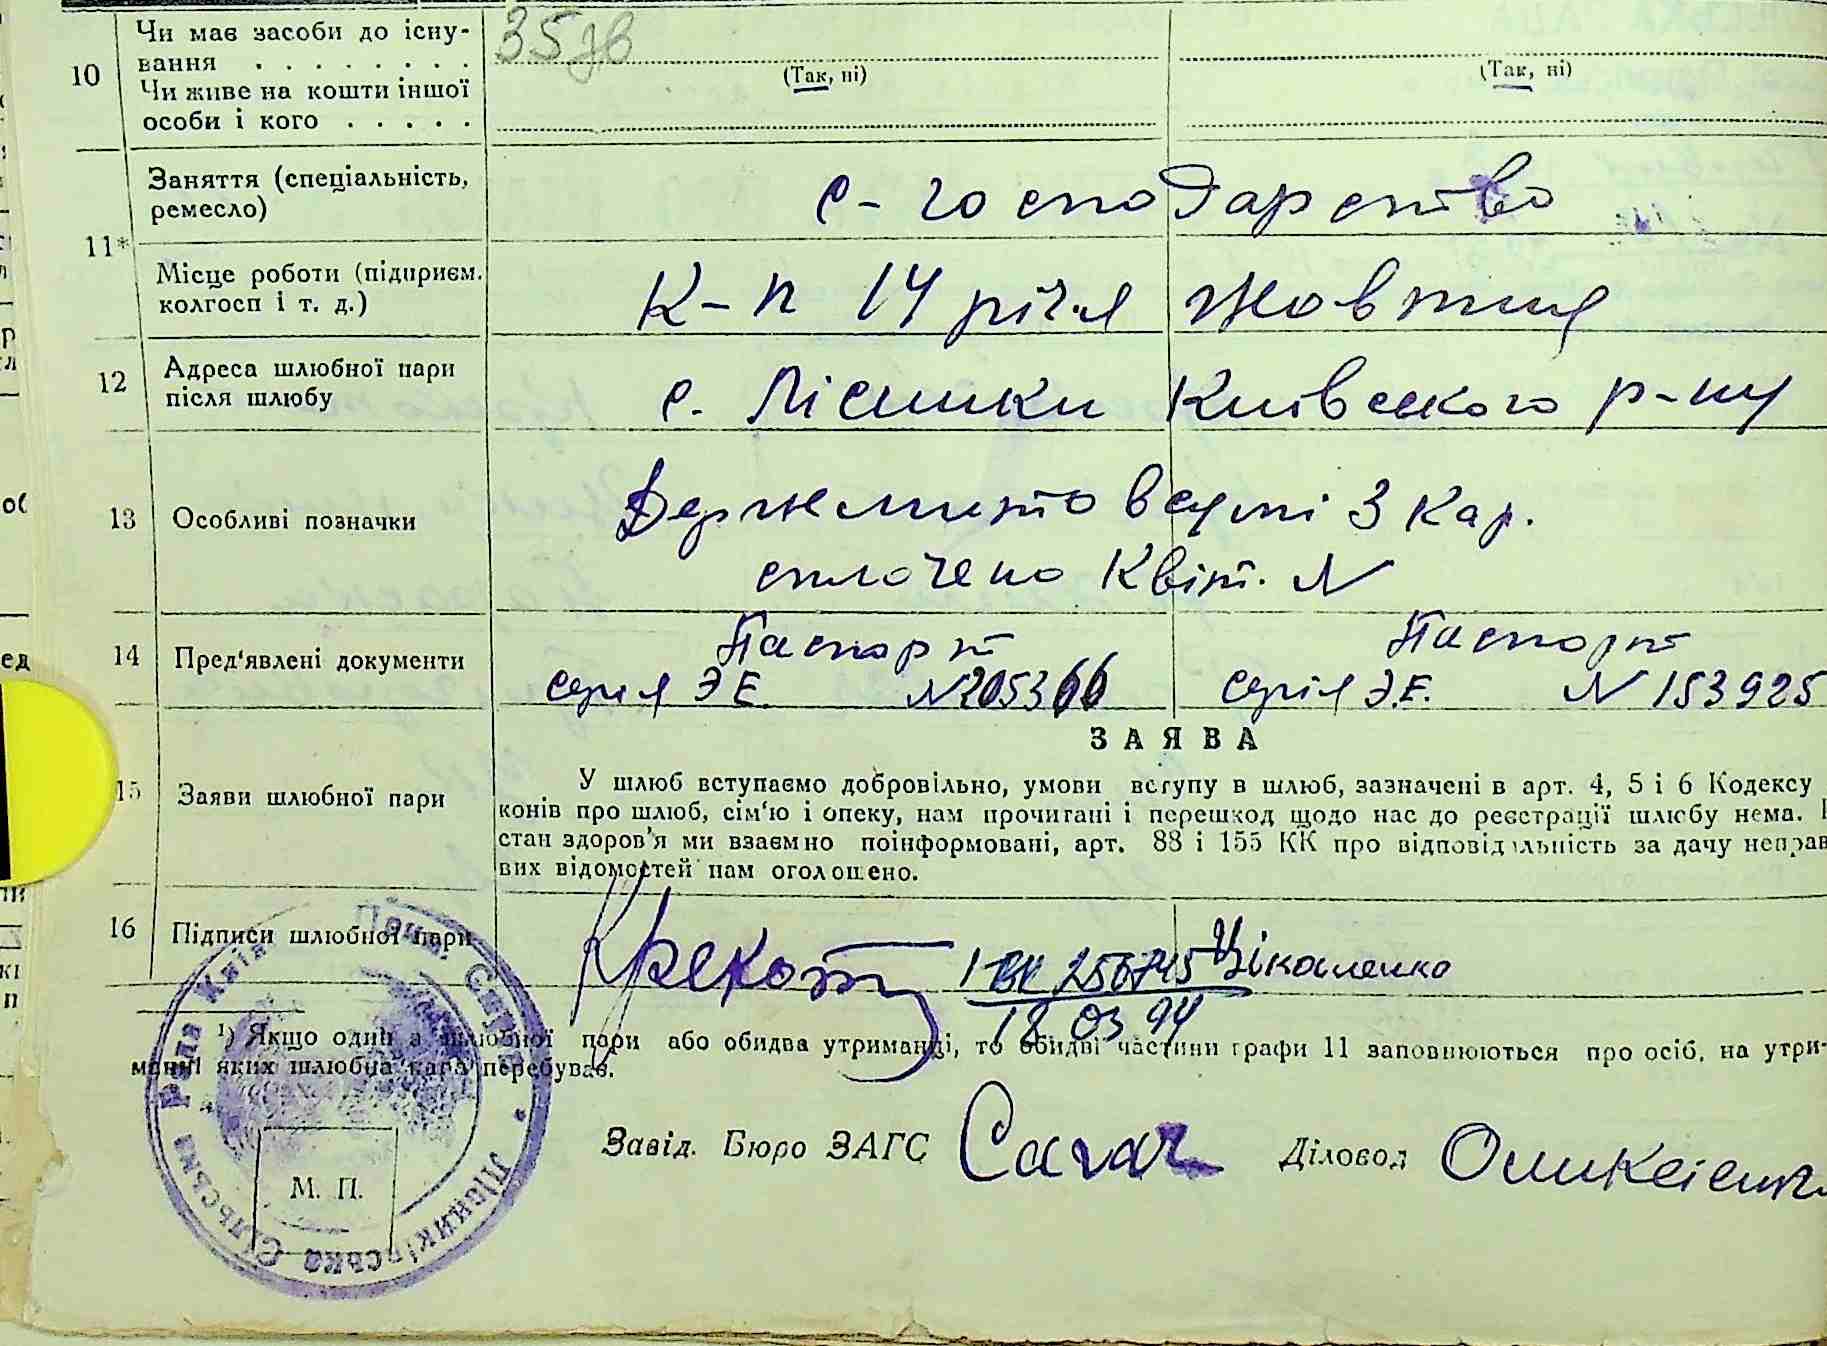 35зв
10
Чи має засоби до існу-
вання . . . . . . . .
(Так, ні)
(Так, ні)
Чи живе на кошти іншої
особи і кого . . . . .
11*
Заняття (спеціальність,
ремесло)
с-господарство
Місце роботи (підприєм.
колгосп і т. д.)
К-п 14 річ.я Жовтня
12
Адреса шлюбної пари
після шлюбу
с. Пісники Київського р-ну
13
Особливі позначки
Держмито в сумі 3 кар.
сплочено Квіт. N
14
Пред'явлені документи
Паспорт
Паспорт
Серія Э Е. N 205366
Серія Э.Е. N 153925
ЗАЯВА
15
Заяви шлюбної пари
У шлюб вступаємо добровільно, умови вступу в шлюб, зазначені в арт. 4, 5 і 6 Кодексу
конів про шлюб, сім'ю і опеку, нам прочитані і перешкод щодо нас до реєстрації шлюбу нема.
стан здоров'я ми взаємно поінформовані, арт. 88 і 155 КК про відповідальність за дачу неправ
вих відомостей нам оголошено.
16
Підписи шлюбної пари
Крекот
256745
Цікаленко
18.03.94
¹) Якщо один з шлюбної пари або обидва утриманці, то обидві частини графи 11 заповнюються про осіб, на утри-
манні яких шлюбна пара перебуває.
Завід. Бюро ЗАГС
Діловод
М. П.
Сільська Рада Київ